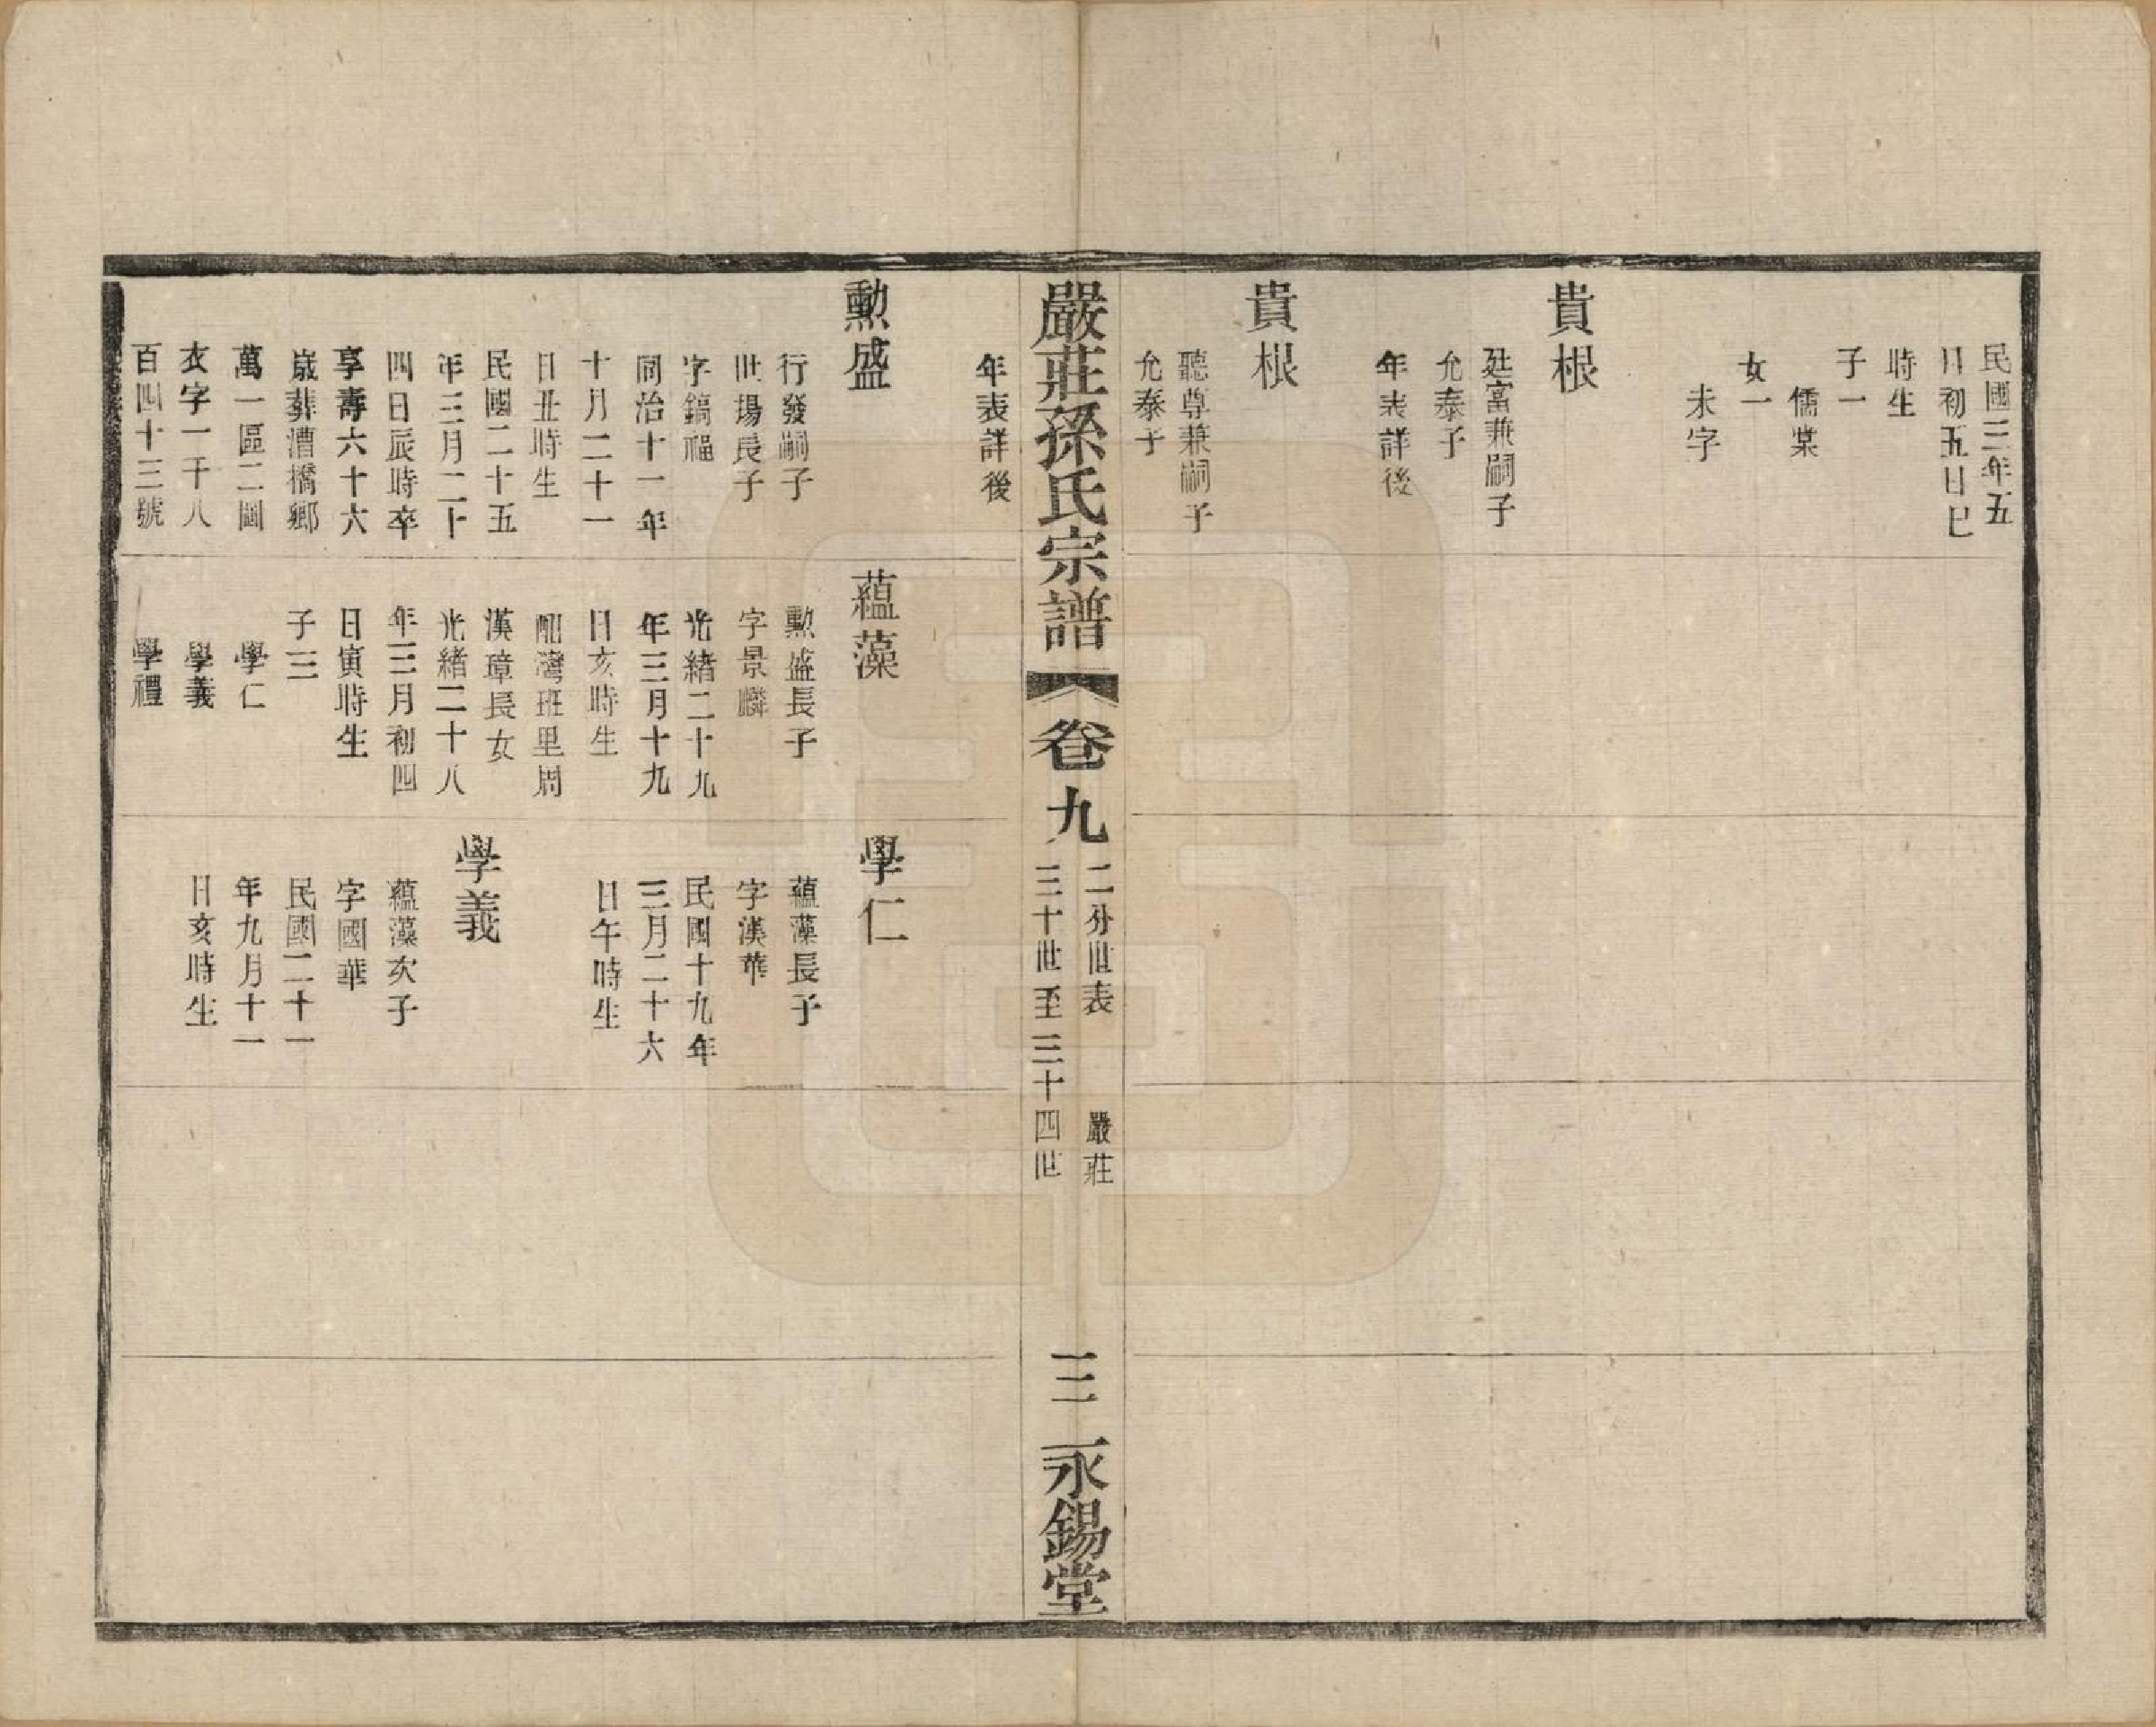 民國三年五
月初五日巳
時生
子一
儒棠
女一
未字
貴根
廷富兼嗣子
允泰子
年表詳後
貴根
聽尊兼嗣子
允泰子
嚴莊孫氏宗譜
卷九
二分世表 嚴莊
三十世至三十四世
三
永錫堂
年表詳後
勲盛
行發嗣子
世揚長子
字鎬福
同治十一年
十月二十一
日丑時生
民國二十五
年三月二十
四日辰時卒
享壽六十六
歲葬漕橋鄉
萬一區二圖
衣字一千八
百四十三號
蘊藻
勲盛長子
字景麟
光緒二十九
年三月十九
日亥時生
配灣班里周
漢璋長女
光緒二十八
年三月初四
日寅時生
子三
學仁
學義
學禮
學仁
蘊藻長子
字漢華
民國十九年
三月二十六
日午時生
學義
蘊藻次子
字國華
民國二十一
年九月十一
日亥時生